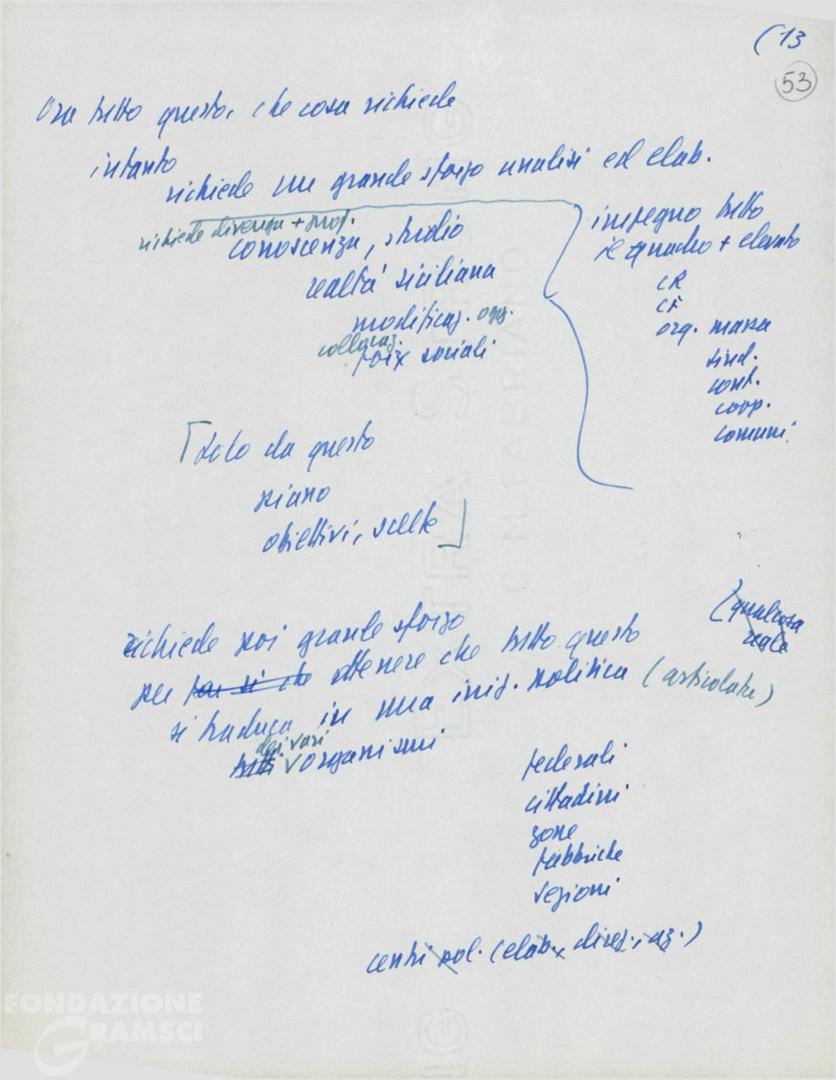 (13
53
Ora tutto questo, che cosa richiede
intanto
richiede un grande sforzo analisi ed elab.
richiede divenga + prof.
conoscenza, studio
realtà siciliana
modificaz. ogg.
collocaz.
forze sociali
impegno tutto
il quadro + elevato
CR
CF
org. massa
sind.
cont.
coop.
comuni
[Solo da questo
piano
obiettivi, scelte]
richiede poi grande sforzo
per far sì che ottenere che tutto questo
si traduca in una iniz. politica (articolata)
(qualcosa
reale
dei vari
tutti organismi
federali
cittadini
zone
fabbriche
sezioni
centri pol. (elab., direz., az.)
FONDAZIONE
GRAMSCI
onlus
EXTRA STRONG
C.M. FABRIANO